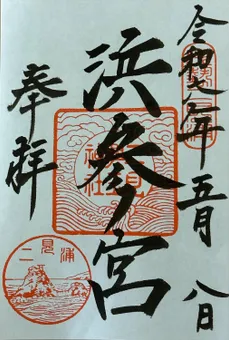 令和元年五月八日
浜参ノ宮
奉拝
二見浦